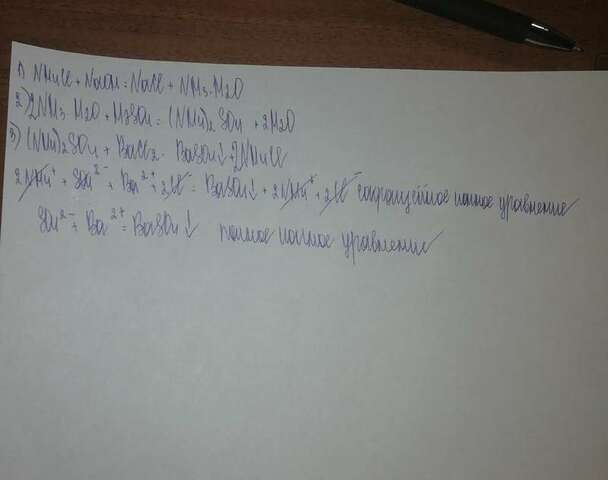 1) NH4Cl + NaOH = NaCl + NH3·H2O
2) 2NH3·H2O + H2SO4 = (NH4)2 SO4 + 2H2O
3) (NH4)2SO4 + BaCl2 = BaSO4↓ + 2NH4Cl
2NH4⁺ + SO4²⁻ + Ba²⁺ + 2Cl⁻ = BaSO4↓ + 2NH4⁺ + 2Cl⁻ сокращённое ионное уравнение
SO4²⁻ + Ba²⁺ = BaSO4↓ полное ионное уравнение